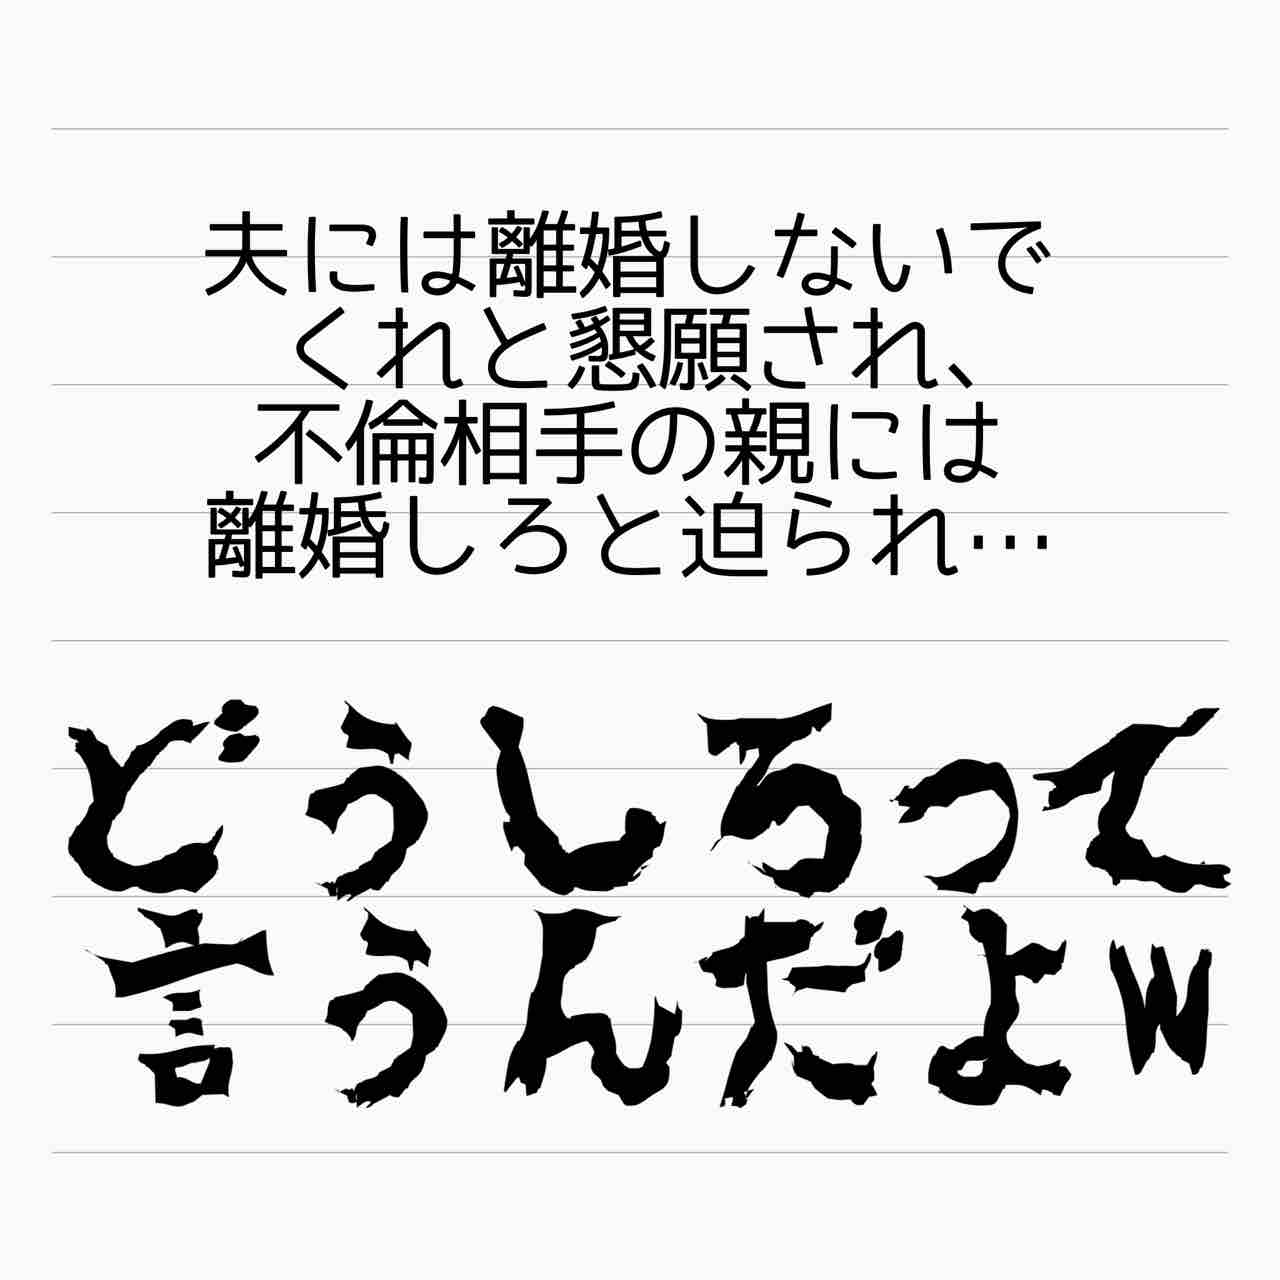 夫には離婚しないで
くれと懇願され、
不倫相手の親には
離婚しろと迫られ…
どうしろって
言うんだよw